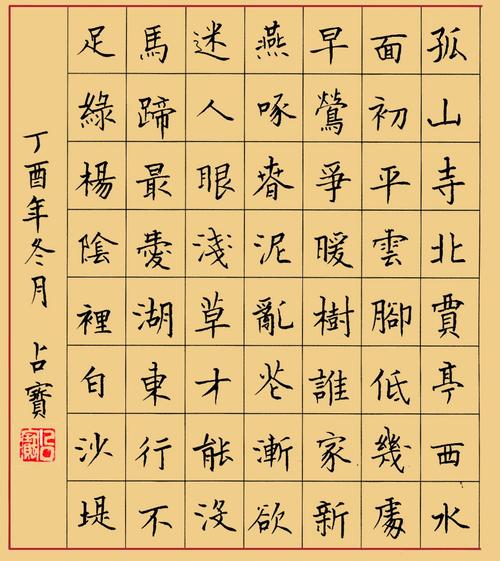 孤山寺北賈亭西水
面初平雲腳低幾處
早鶯爭暖樹誰家新
燕啄春泥亂花漸欲
迷人眼淺草才能没
馬蹄最愛湖東行不
足綠楊陰裡白沙堤
丁酉年冬月 占寶